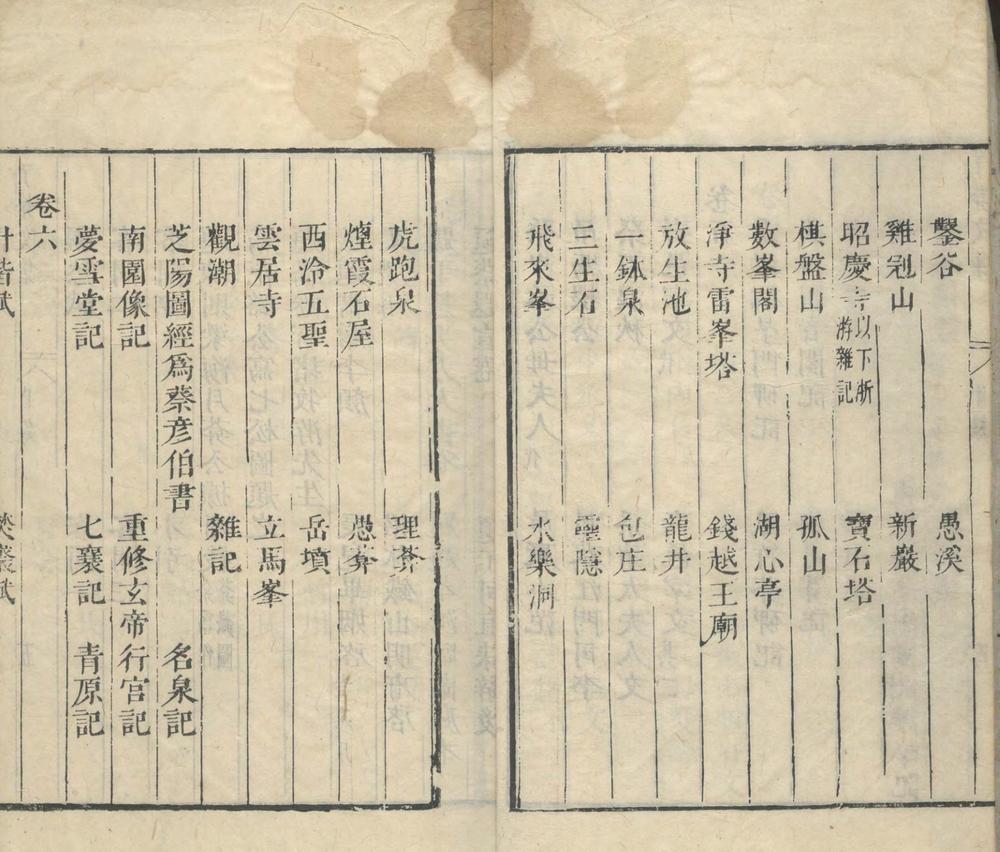 鑿谷 愚溪
雞冠山 新巖
昭慶寺以下浙游雜記 寶石塔
棋盤山 孤山
數峯閣 湖心亭
淨寺雷峯塔 錢越王廟
放生池 龍井
一鉢泉 包庄
三生石 靈隱
飛來峯 水樂洞
虎跑泉 理菴
煙霞石屋 愚菴
西泠五聖 岳墳
雲居寺 立馬峯
觀潮 雜記
芝陽圖經爲蔡彥伯書 名泉記
南園像記 重修玄帝行宮記
夢雪堂記 七襄記 青原記
卷六